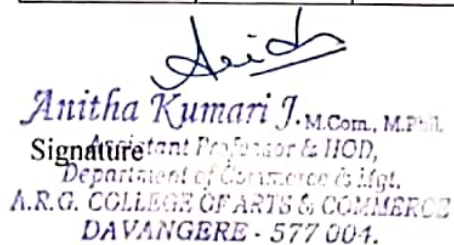 Anitha Kumari J. M.Com., M.Phil.
Signature
Assistant Professor & HOD,
Department of Commerce & Mgt.
A.R.G. COLLEGE OF ARTS & COMMERCE
DAVANGERE - 577 004.